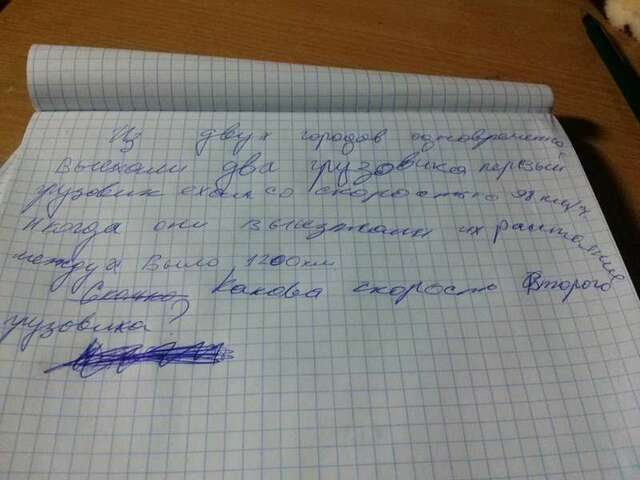 Из двух городов одновременно
выехали два грузовика первый
грузовик ехал со скоростью 98 км/ч
И когда они выезжали их растояние
между было 1200км
Сколко Какова скорость второго
грузовика?